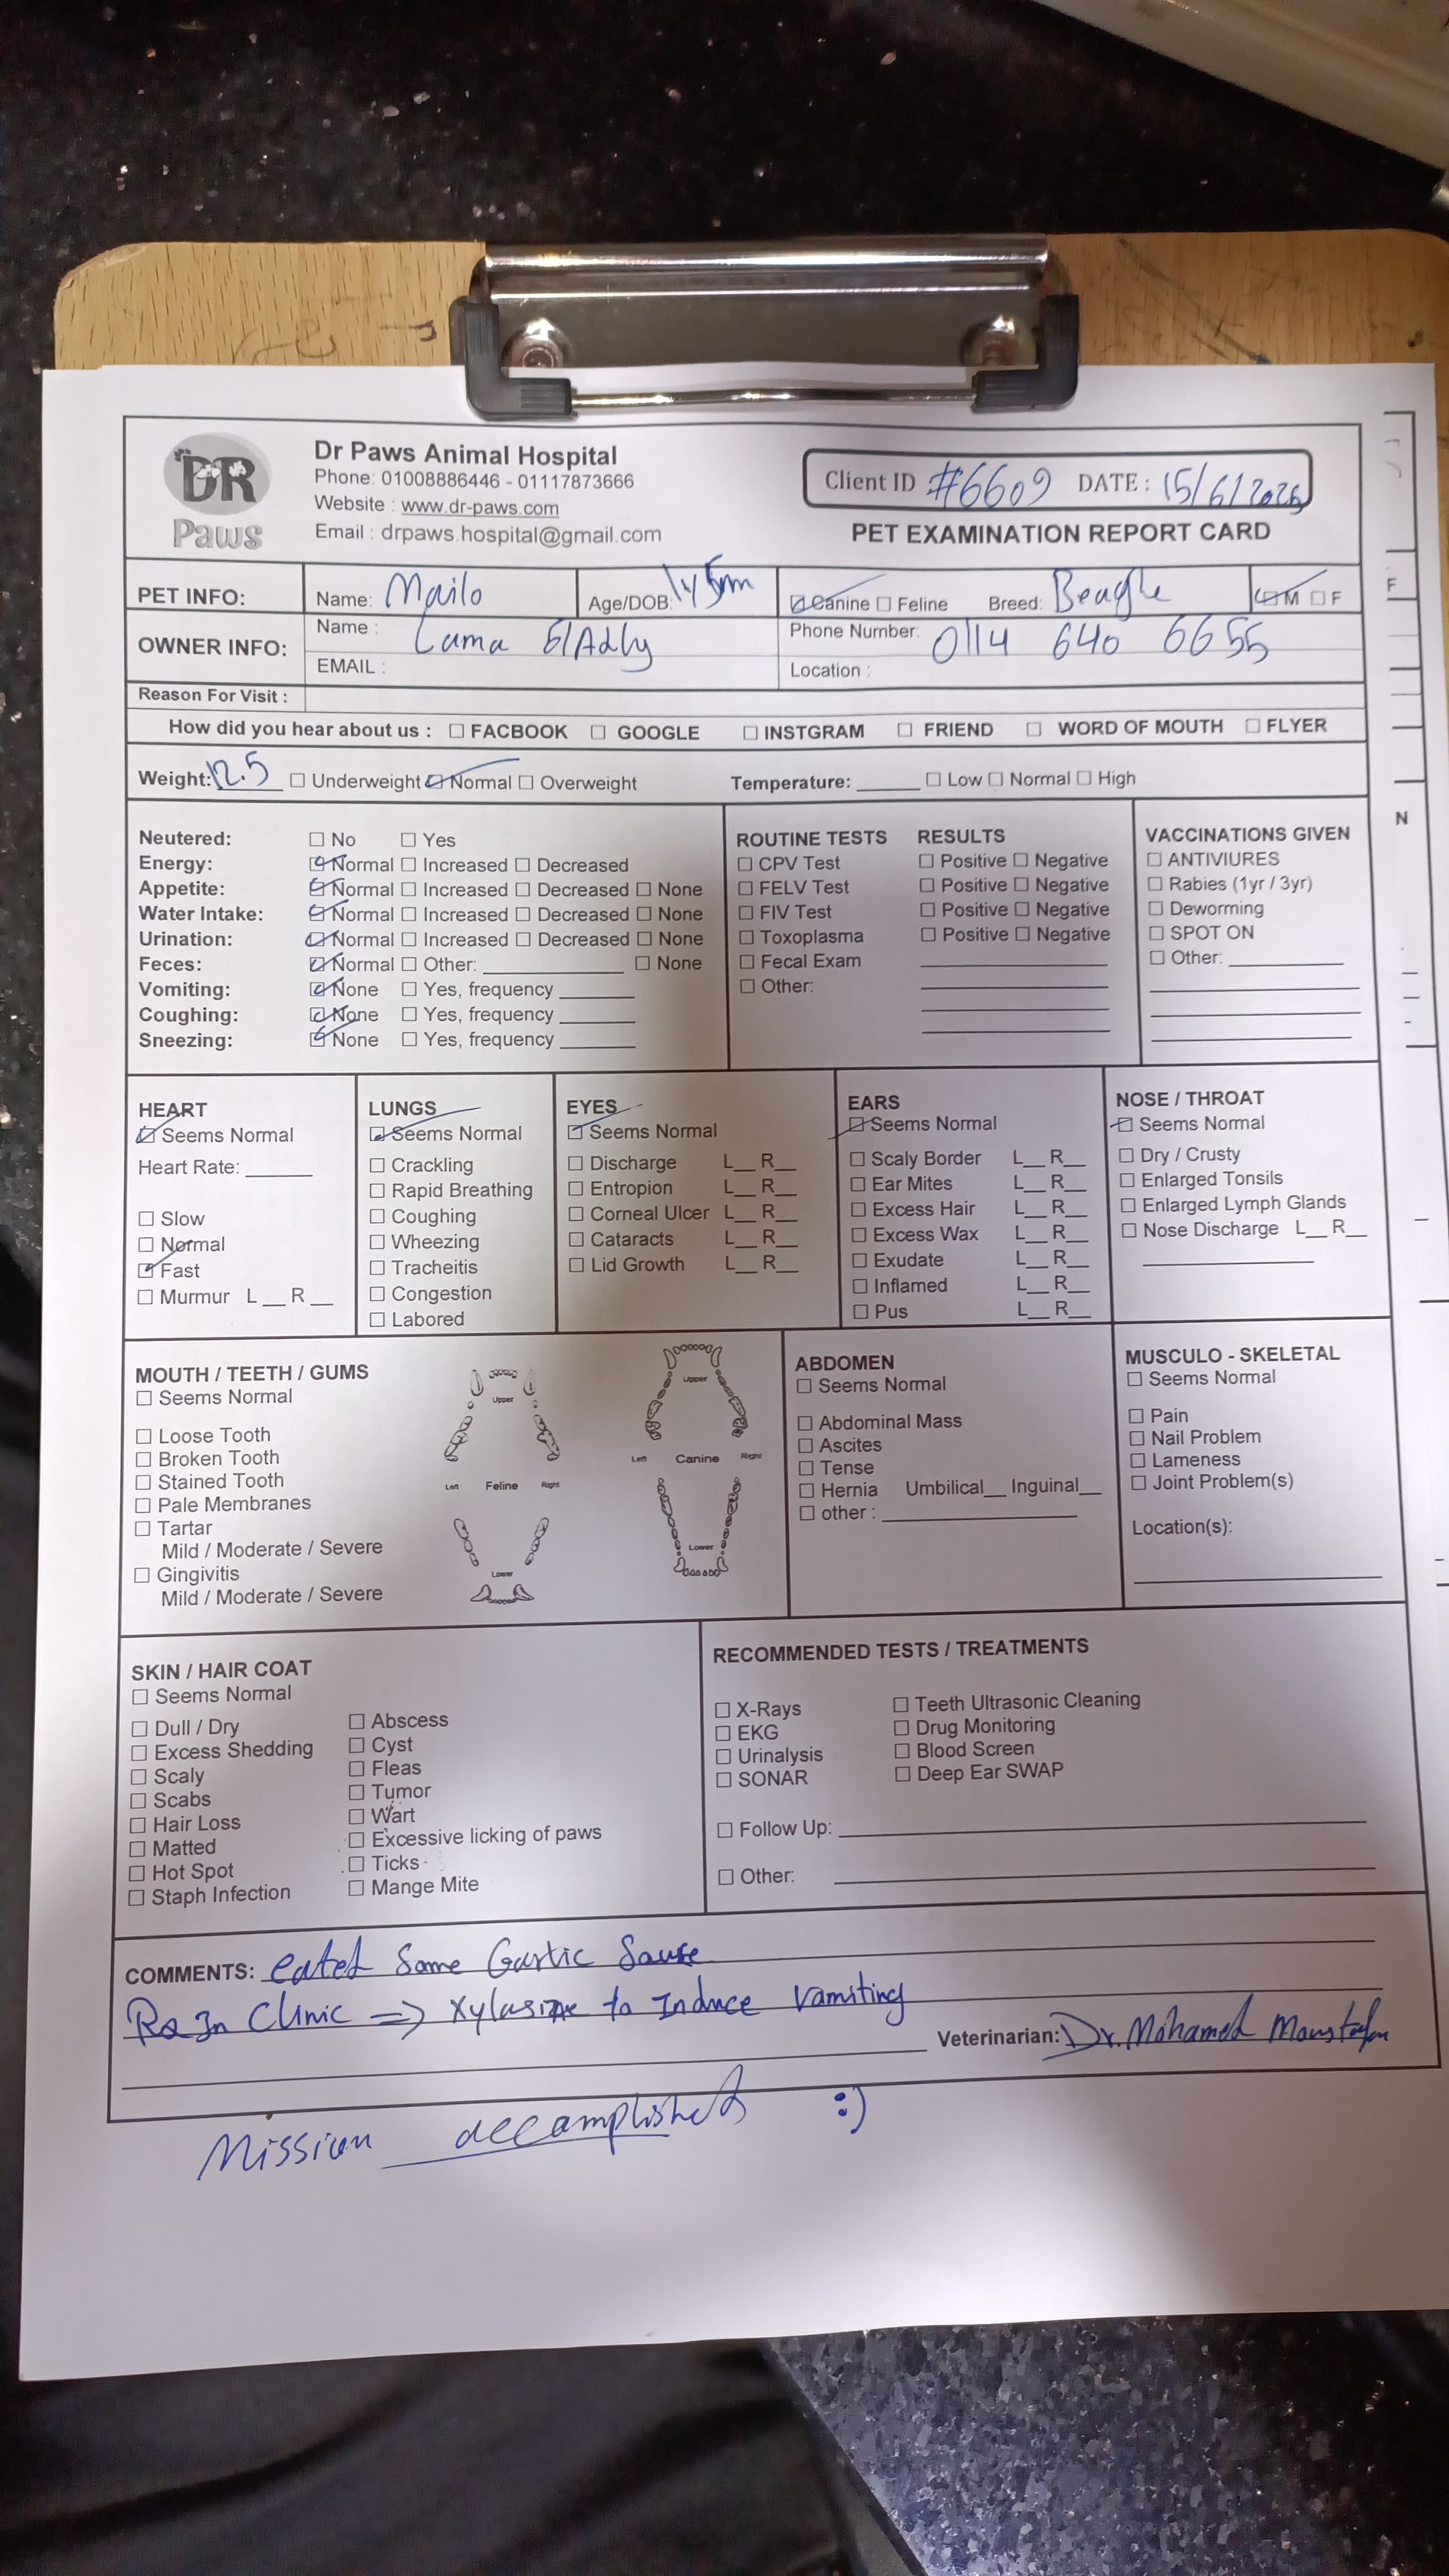 DR
Paws
Dr Paws Animal Hospital
Phone: 01008886446 - 01117873666
Website : www.dr-paws.com
Email : drpaws.hospital@gmail.com
Client ID #6609 DATE : 15/6/2025
PET EXAMINATION REPORT CARD
PET INFO: Name: Mailo Age/DOB: 1y 5m ☑ Canine ☐ Feline Breed: Beagle ☑ M ☐ F
OWNER INFO: Name : Lama ElAdly Phone Number: 0114 640 6655
EMAIL : Location :
Reason For Visit :
How did you hear about us : ☐ FACBOOK ☐ GOOGLE ☐ INSTGRAM ☐ FRIEND ☐ WORD OF MOUTH ☐ FLYER
Weight: 12.5 ☐ Underweight ☑ Normal ☐ Overweight Temperature: ______ ☐ Low ☐ Normal ☐ High
Neutered: ☐ No ☐ Yes
Energy: ☑ Normal ☐ Increased ☐ Decreased
Appetite: ☑ Normal ☐ Increased ☐ Decreased ☐ None
Water Intake: ☑ Normal ☐ Increased ☐ Decreased ☐ None
Urination: ☑ Normal ☐ Increased ☐ Decreased ☐ None
Feces: ☑ Normal ☐ Other: ______ ☐ None
Vomiting: ☑ None ☐ Yes, frequency ______
Coughing: ☑ None ☐ Yes, frequency ______
Sneezing: ☑ None ☐ Yes, frequency ______
ROUTINE TESTS RESULTS
☐ CPV Test ☐ Positive ☐ Negative
☐ FELV Test ☐ Positive ☐ Negative
☐ FIV Test ☐ Positive ☐ Negative
☐ Toxoplasma ☐ Positive ☐ Negative
☐ Fecal Exam
☐ Other:
VACCINATIONS GIVEN
☐ ANTIVIURES
☐ Rabies (1yr / 3yr)
☐ Deworming
☐ SPOT ON
☐ Other: ______
HEART
☑ Seems Normal
Heart Rate: ______
☐ Slow
☐ Normal
☑ Fast
☐ Murmur L __ R __
LUNGS
☑ Seems Normal
☐ Crackling
☐ Rapid Breathing
☐ Coughing
☐ Wheezing
☐ Tracheitis
☐ Congestion
☐ Labored
EYES
☑ Seems Normal
☐ Discharge L__ R__
☐ Entropion L__ R__
☐ Corneal Ulcer L__ R__
☐ Cataracts L__ R__
☐ Lid Growth L__ R__
EARS
☑ Seems Normal
☐ Scaly Border L__ R__
☐ Ear Mites L__ R__
☐ Excess Hair L__ R__
☐ Excess Wax L__ R__
☐ Exudate L__ R__
☐ Inflamed L__ R__
☐ Pus L__ R__
NOSE / THROAT
☑ Seems Normal
☐ Dry / Crusty
☐ Enlarged Tonsils
☐ Enlarged Lymph Glands
☐ Nose Discharge L__ R__
MOUTH / TEETH / GUMS
☐ Seems Normal
☐ Loose Tooth
☐ Broken Tooth
☐ Stained Tooth
☐ Pale Membranes
☐ Tartar
Mild / Moderate / Severe
☐ Gingivitis
Mild / Moderate / Severe
Upper
Left Feline Right
Lower
Upper
Left Canine Right
Lower
ABDOMEN
☐ Seems Normal
☐ Abdominal Mass
☐ Ascites
☐ Tense
☐ Hernia Umbilical__ Inguinal__
☐ other : ______
MUSCULO - SKELETAL
☐ Seems Normal
☐ Pain
☐ Nail Problem
☐ Lameness
☐ Joint Problem(s)
Location(s):
SKIN / HAIR COAT
☐ Seems Normal
☐ Dull / Dry
☐ Excess Shedding
☐ Scaly
☐ Scabs
☐ Hair Loss
☐ Matted
☐ Hot Spot
☐ Staph Infection
☐ Abscess
☐ Cyst
☐ Fleas
☐ Tumor
☐ Wart
☐ Excessive licking of paws
☐ Ticks
☐ Mange Mite
RECOMMENDED TESTS / TREATMENTS
☐ X-Rays
☐ EKG
☐ Urinalysis
☐ SONAR
☐ Teeth Ultrasonic Cleaning
☐ Drug Monitoring
☐ Blood Screen
☐ Deep Ear SWAP
☐ Follow Up: ______
☐ Other: ______
COMMENTS: eated Some Garlic Sause
In Clinic => Xylasine to Induce Vomiting
Veterinarian: Dr. Mohamed Moustafa
Mission accomplished :)
F
N